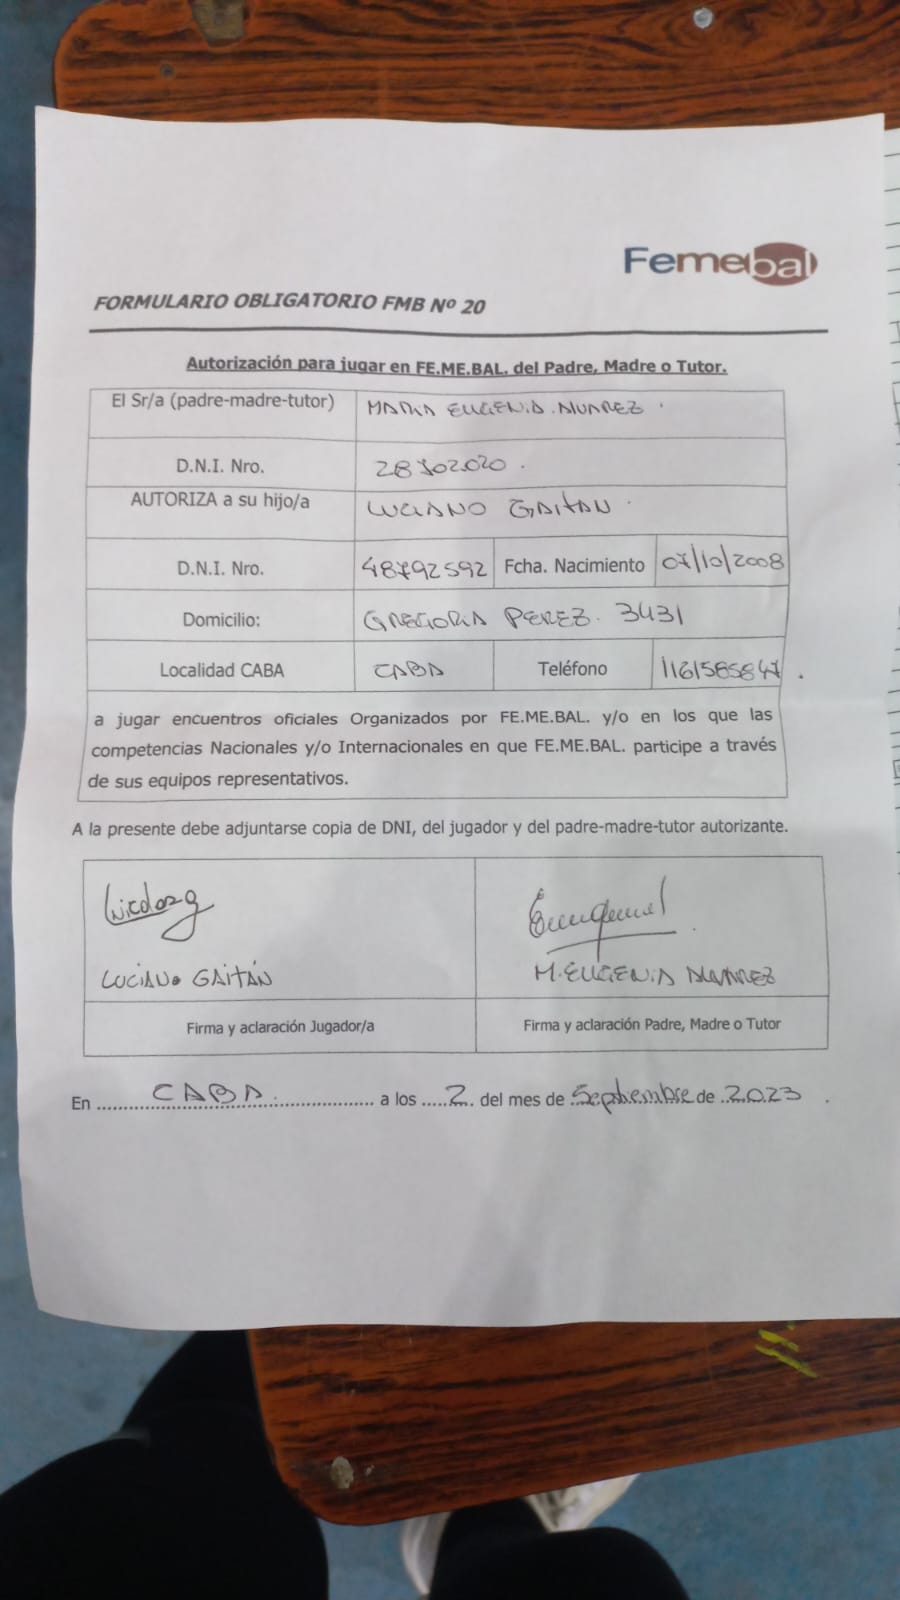 Femebal
FORMULARIO OBLIGATORIO FMB Nº 20
Autorización para jugar en FE.ME.BAL. del Padre, Madre o Tutor.
El Sr/a (padre-madre-tutor) MARIA EUGENIA ALVAREZ
D.N.I. Nro. 28702020
AUTORIZA a su hijo/a LUCIANO GAITAN
D.N.I. Nro. 48792592 Fcha. Nacimiento 07/10/2008
Domicilio: GREGORIA PEREZ 3431
Localidad CABA CABA Teléfono
a jugar encuentros oficiales Organizados por FE.ME.BAL. y/o en los que las
competencias Nacionales y/o Internacionales en que FE.ME.BAL. participe a través
de sus equipos representativos.
A la presente debe adjuntarse copia de DNI, del jugador y del padre-madre-tutor autorizante.
LUCIANO GAITÁN M. EUGENIA ALVAREZ
Firma y aclaración Jugador/a Firma y aclaración Padre, Madre o Tutor
En CABA a los 2 del mes de Septiembre de 2023